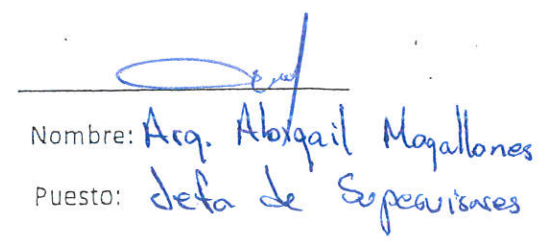 Nombre: Arq. Abigail Magallanes
Puesto: Jefa de Supervisores